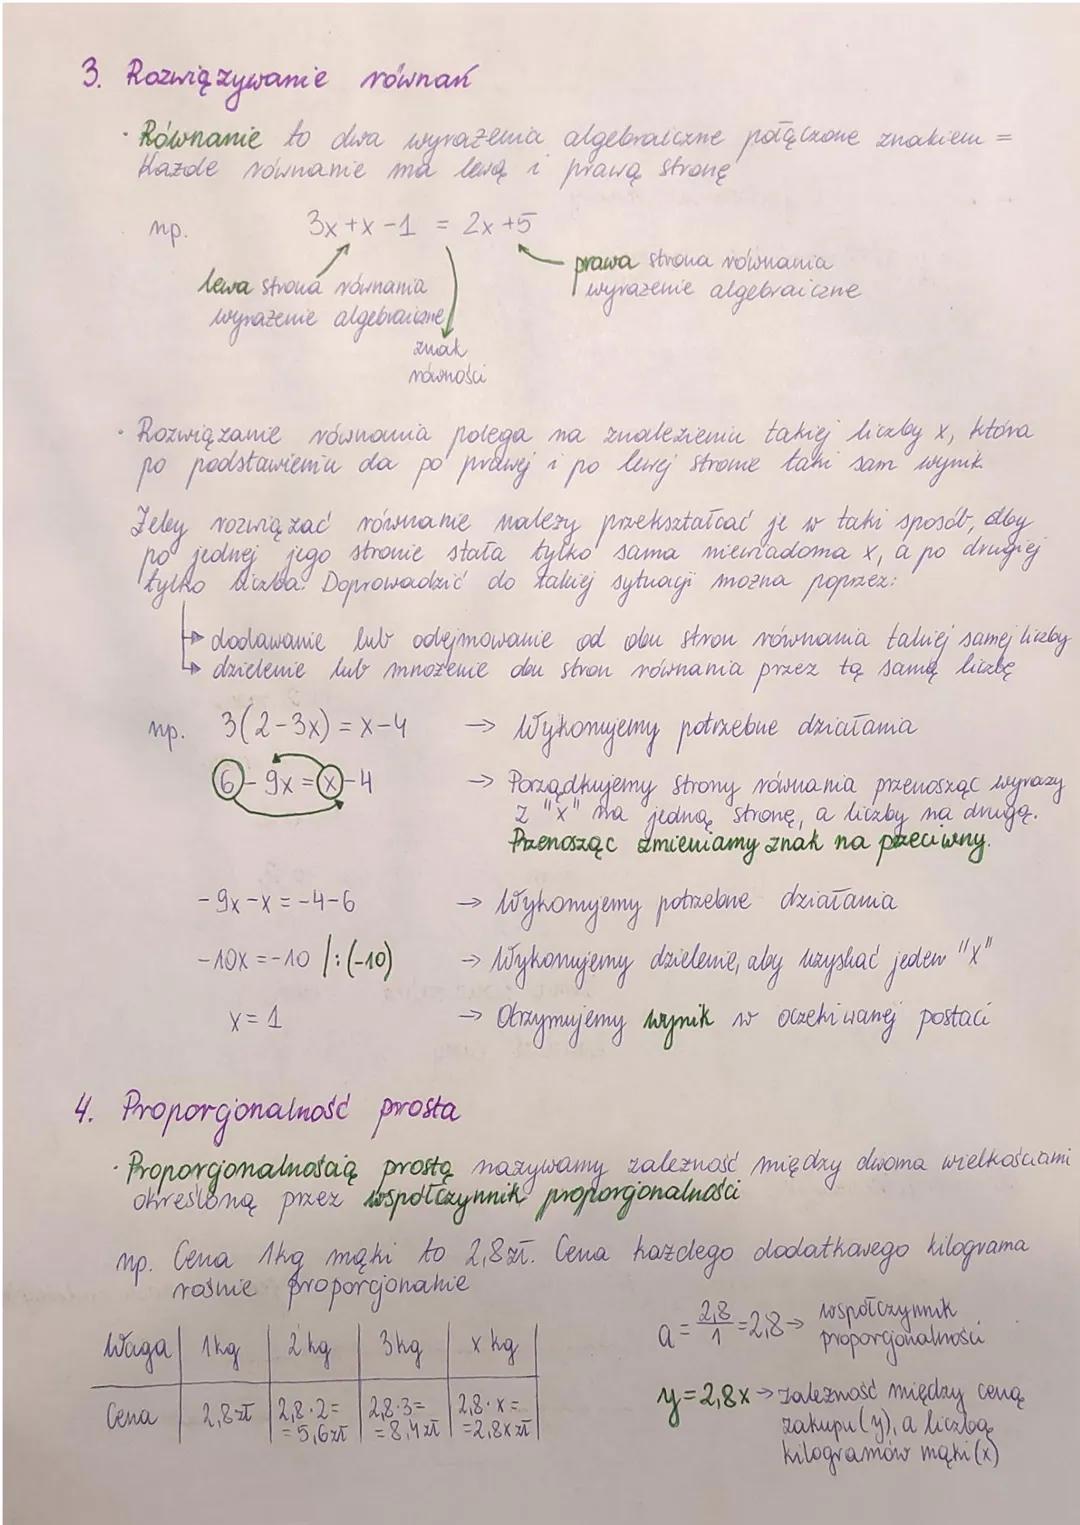 3. Rozwiązywanie równań
· Równanie to dwa wyrażenia algebraiczne połączone znakiem =
Każde równanie ma lewą i prawą stronę
np. 3x+x-1 = 2x+5
lewa strona równania
wyrażenie algebraiczne
znak
równości
prawa strona równania
wyrażenie algebraiczne
· Rozwiązanie równania polega na znalezieniu takiej liczby x, która
po podstawieniu da po prawej i po lewej stronie taki sam wynik.
Żeby rozwiązać równanie należy przekształcać je w taki sposób, aby
po jednej jego stronie stała tylko sama niewiadoma x, a po drugiej
tylko liczba. Doprowadzić do takiej sytuacji można poprzez:
→ dodawanie lub odejmowanie od obu stron równania takiej samej liczby
→ dzielenie lub mnożenie obu stron równania przez tą samą liczbę
np. 3(2-3x) = x-4 → Wykonujemy potrzebne działania
6-9x = x-4 → Porządkujemy strony równania przenosząc wyrazy
z "x" na jedną stronę, a liczby na drugą.
Przenosząc zmieniamy znak na przeciwny.
-9x-x = -4-6 → Wykonujemy potrzebne działania
-10x = -10 /:(-10) → Wykonujemy dzielenie, aby uzyskać jeden "x"
x = 1 → Otrzymujemy wynik w oczekiwanej postaci
4. Proporcjonalność prosta
· Proporcjonalnością prostą nazywamy zależność między dwoma wielkościami
określoną przez współczynnik proporcjonalności
np. Cena 1kg mąki to 2,8zł. Cena każdego dodatkowego kilograma
rośnie proporcjonalnie
Waga 1kg 2kg 3kg x kg
Cena 2,8zł 2,8·2= 2,8·3= 2,8·x=
=5,6zł =8,4zł =2,8x zł
a = 2,8/1 = 2,8 → współczynnik
proporcjonalności
y=2,8x → zależność między ceną
zakupu (y), a liczbą
kilogramów mąki (x)